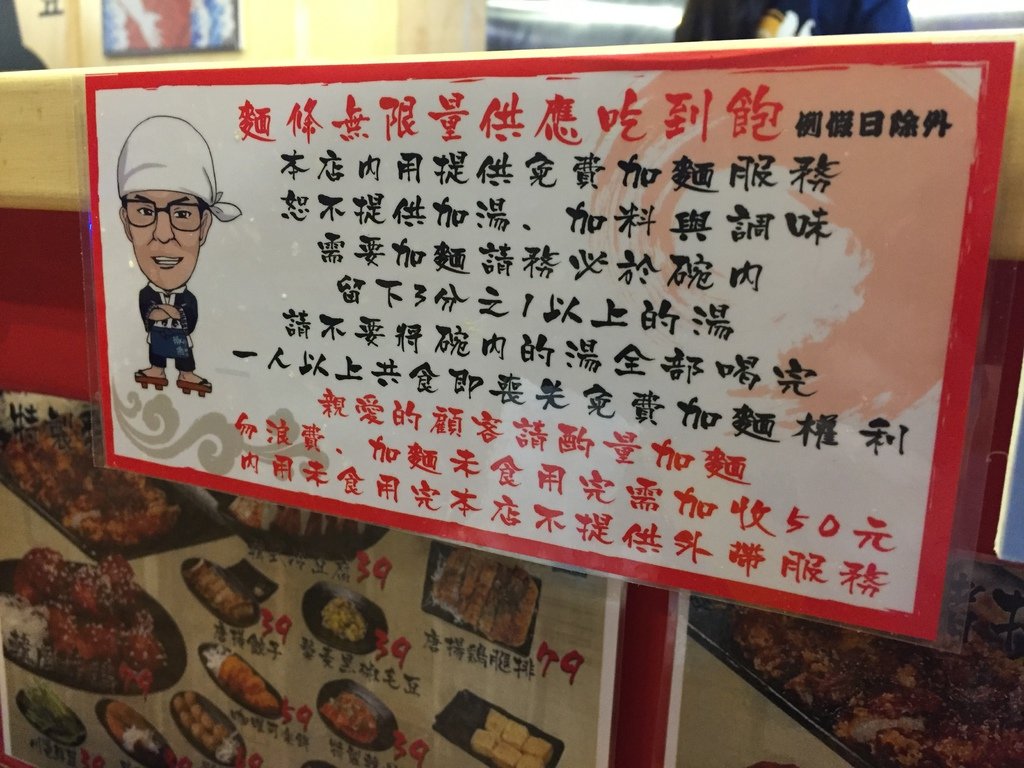 麵條無限量供應吃到飽 例假日除外
本店內用提供免費加麵服務
恕不提供加湯、加料與調味
需要加麵請務必於碗內
留下3分之1以上的湯
請不要將碗內的湯全部喝完
一人以上共食即喪失免費加麵權利
親愛的顧客請酌量加麵
勿浪費、加麵未食用完需加收50元
內用未食用完本店不提供外帶服務
39
唐揚餃子 39
黎麥黑椒毛豆 39
唐揚鷄腿排 79
79
59
39